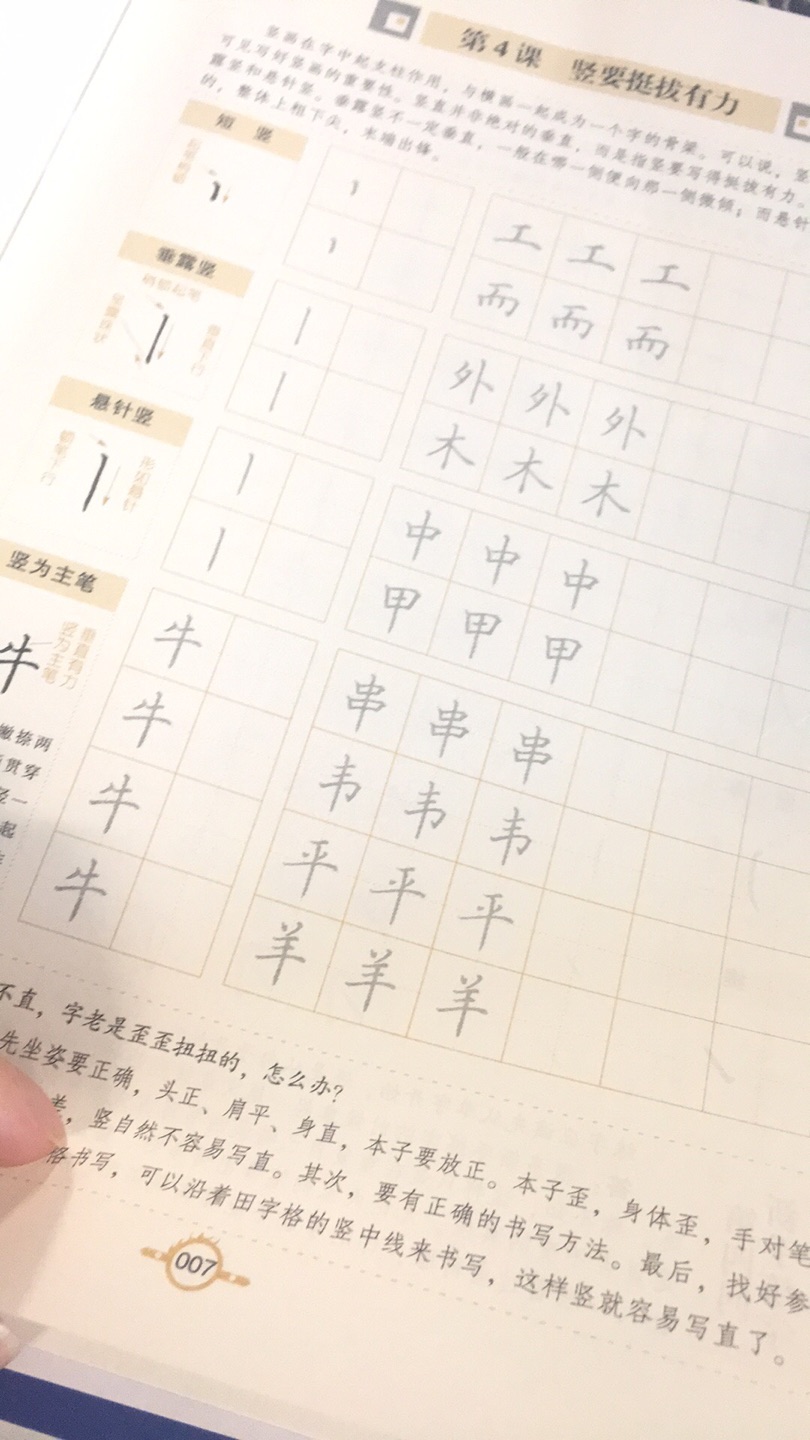 第4课 竖要挺拔有力
竖画在字中起支柱作用，与横画一起成为一个字的骨梁。可以说，竖
可见写好竖画的重要性。竖直并非绝对的垂直，而是指竖要写得挺拔有力。
露竖和悬针竖。垂露竖不一定垂直，一般在哪一侧便向那一侧微倾；而悬针
的，整体上粗下尖，末端出锋。
短 竖
工 工 工
而 而 而
垂露竖
稍顿起笔
垂直下行
外 外 外
木 木 木
悬针竖
顿笔下行
形如悬针
中 中 中
甲 甲 甲
竖为主笔
牛
垂直有力
竖为主笔
牛
牛
牛
牛
串 串 串
韦 韦 韦
平 平 平
羊 羊 羊
撇捺两
贯穿
一
起
不直，字老是歪歪扭扭的，怎么办？
先坐姿要正确，头正、肩平、身直，本子要放正。本子歪，身体歪，手对笔
，竖自然不容易写直。其次，要有正确的书写方法。最后，找好参
格书写，可以沿着田字格的竖中线来书写，这样竖就容易写直了。
007